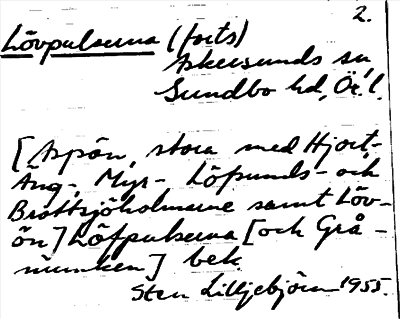 2.
Lövpulserna (forts)
Askersunds sn,
Sundbo hd, Ör. l.
[Aspön, stora med Hjort-,
Äng-, Myr- Löfsunds- och
Brottsjöholmarne samt Löv-
ön] Löfpulserna [och Grå-
munken] bek.
Sten Lilljebjörn 1955.